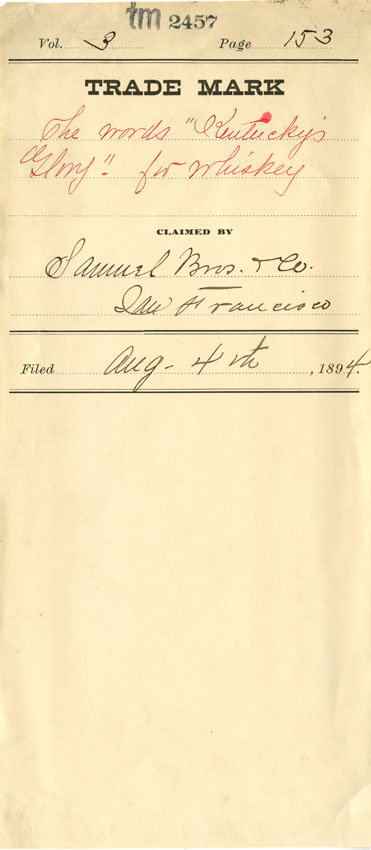 tm 2457
Vol. 3 Page 153
TRADE MARK
The words "Kentucky's
Glory". for whiskey
CLAIMED BY
Samuel Bros. & Co.
San Francisco
Filed Aug - 4th, 1894.